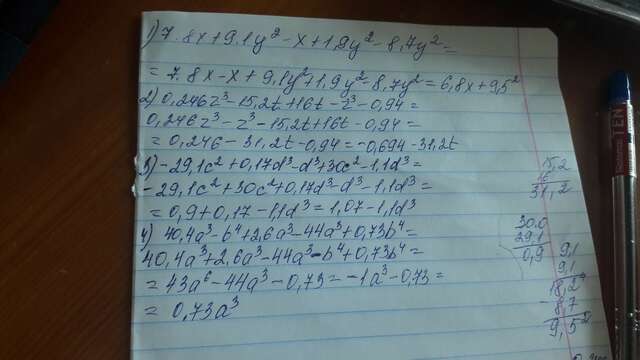 1) 7.8x+9.1y²-x+1,9y²-8,7y²=
=7.8x-x+9,1y²+1,9y²-8,7y²=6,8x+9,5²
2) 0,246z³-15,2t+16t-z³-0,94=
0,246z³-z³-15,2t+16t-0,94=
=0,246-31,2t-0,94=-0,694-31,2t
3) -29,1c²+0,17d³-d³+30c²-1,1d³=
-29,1c²+30c²+0,17d³-d³-1,1d³=
=0,9+0,17-1,1d³=1,07-1,1d³
4) 40,4a³-b⁴+2,6a³-44a³+0,73b⁴=
40,4a³+2,6a³-44a³-b⁴+0,73b⁴=
=43a⁶-44a³-0,73=-1a³-0,73=
=0,73a³
15,2
16
31,2
30.0
29.1
0,9
9,1
9,1
18,2
-8,7
9,5²
TEN